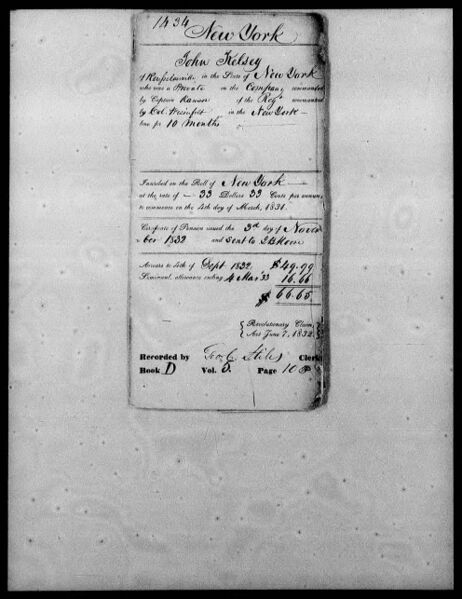 1434
New York
John Kelsey
of in the State of New York
who was a Private in the Company commanded
by Captain Ranson of the Regt commanded
by Col. in the New York
line for 10 months
Inscribed on the Roll of New York
at the rate of 33 Dollars 33 Cents per annum,
to commence on the 4th day of March, 1831.
Certificate of Pension issued the 3rd day of Novem
ber 1832 and sent to
Arrears to 4th of Sept 1832 $49.99
Semi-anl. allowance ending 4 Mar 33 16.66
$ 66.65
Revolutionary Claim,
Act June 7, 1832.
Recorded by Geo. C. Stiles Clerk,
Book D Vol. 5. Page 10